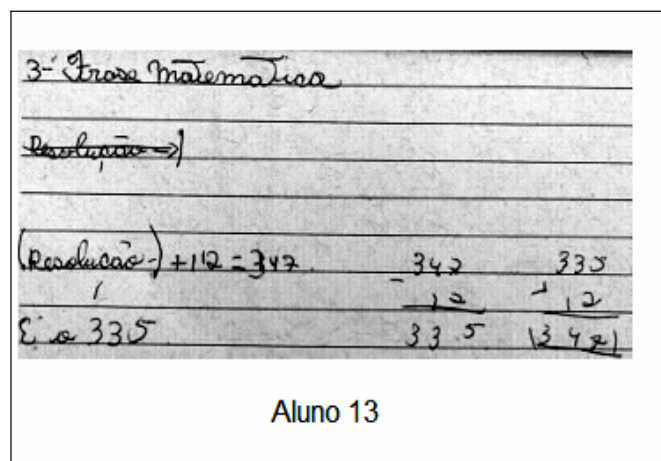 3- Frase Matematica
Resolução →
(Resolução-) +12 = 347. 347 335
- 12 + 12
É o 335 335 1347
Aluno 13